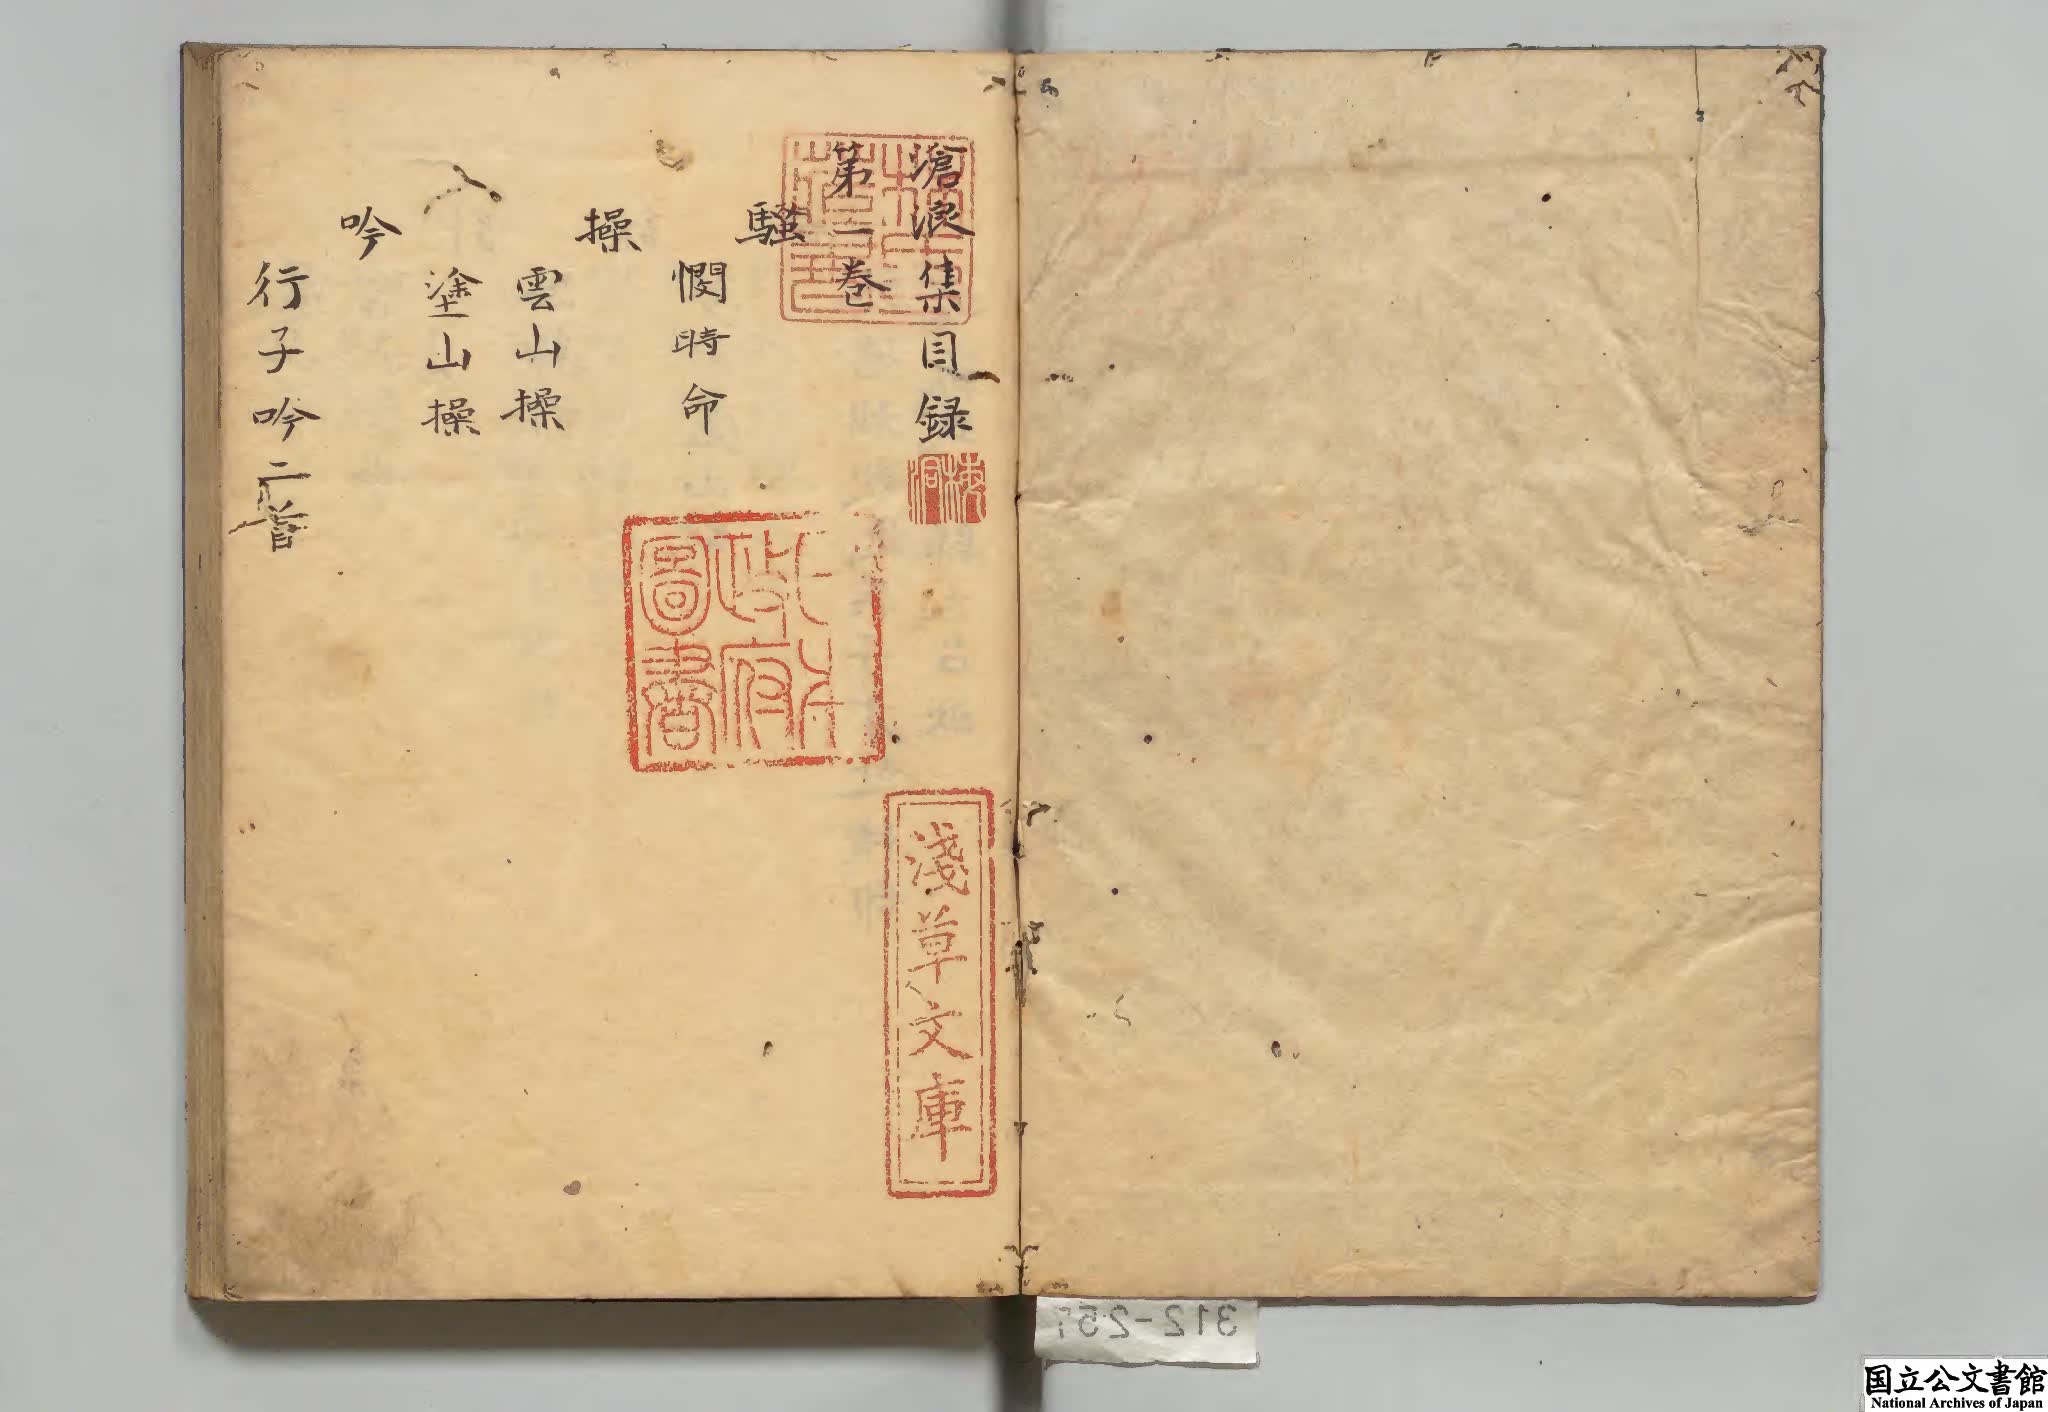 滄浪集目録
第一巻
騷
憫時命
操
雲山操
塗山操
吟
行子吟二首
圖書
淺草文庫
312-257
国立公文書館
National Archives of Japan